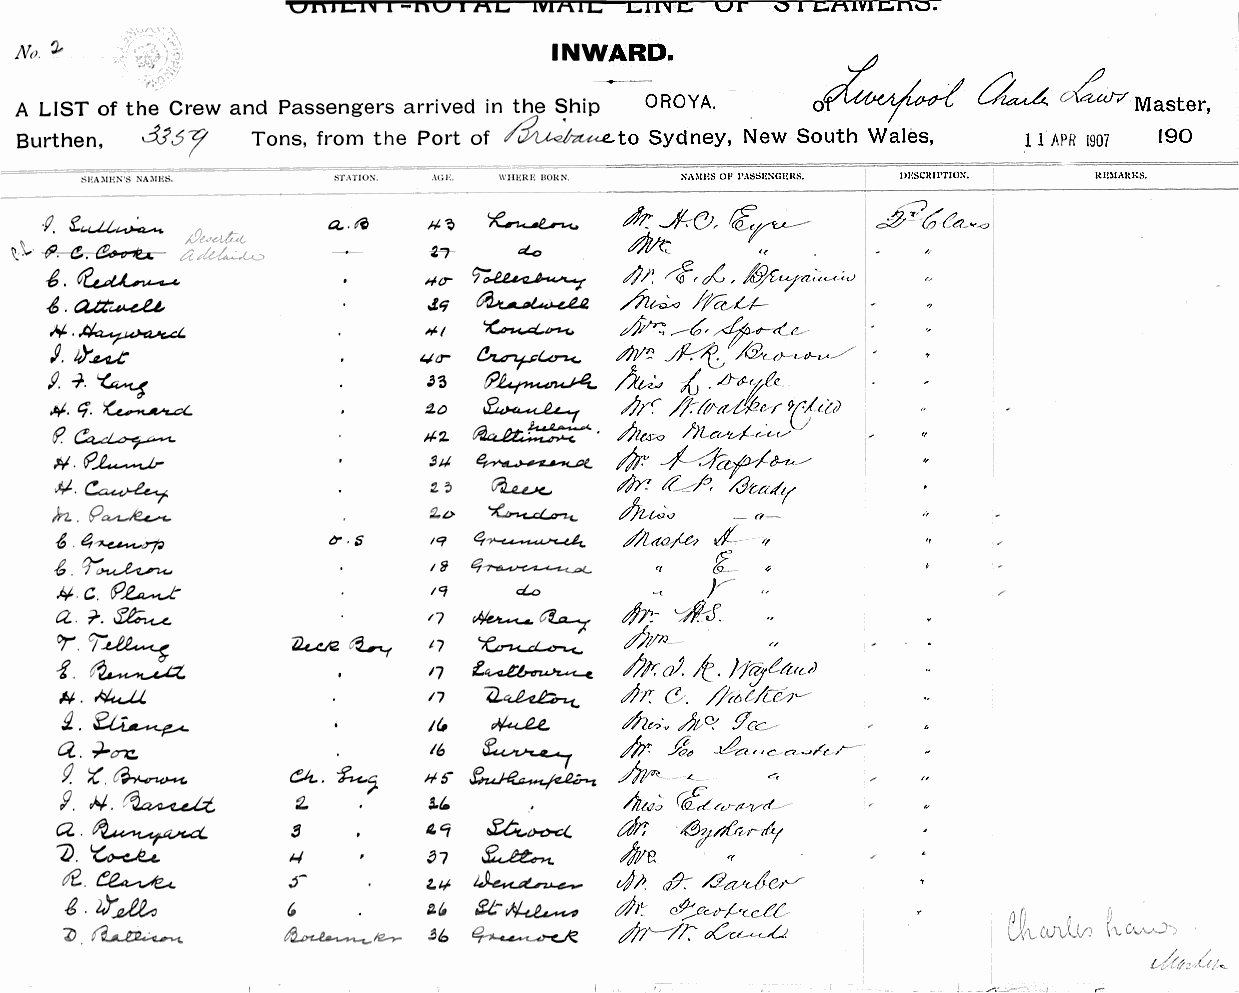 ORIENT-ROYAL MAIL LINE OF STEAMERS.
No. 2
INWARD.
A LIST of the Crew and Passengers arrived in the Ship OROYA. of Liverpool Charles Laws Master,
Burthen, 3359 Tons, from the Port of Brisbane to Sydney, New South Wales, 11 APR 1907 190
SEAMEN'S NAMES. STATION. AGE. WHERE BORN. NAMES OF PASSENGERS. DESCRIPTION. REMARKS.
J. Sullivan A.B 43 London Mr. H. O. Eyre Class
P. C. Cooke Deserted Adelaide 27 do Mrs "
C. Redhouse 40 Tollesbury Mr. E. L. Benjamin "
C. Attwell 39 Bradwell Miss Watt "
H. Hayward 41 London Mrs C. Spode "
J. West 40 Croydon Mrs A. R. Brown "
J. F. Lang 33 Plymouth Miss L. Doyle "
H. G. Leonard 20 Swanley W. Walker & Child "
P. Cadogan 42 Baltimore Ireland. Miss Martin "
H. Plumb 34 Gravesend Mr. A Napton "
H. Cawley 23 Beer Mr. A P. Brady "
M. Parker 20 London Miss - " - "
C. Greenop O.S 19 Greenwich Master H " "
C. Toulson 18 Gravesend " E " "
H. C. Plant 19 do " "
A. F. Stone 17 Herne Bay Mr. H.S. " "
T. Telling Deck Boy 17 London Mrs " "
E. Bennett 17 Eastbourne Mr. J. R. Wayland "
H. Hull 17 Dalston Mr. C. Walker "
J. Strange 16 Hull Miss Mc Gee "
A. Fox 16 Surrey Mr. Geo Lancaster "
J. L. Brown Ch. Eng 45 Southampton Mrs " " "
J. H. Bassett 2 36 Miss Edward "
A. Runyard 3 29 Strood Mr. Hardy "
D. Locke 4 37 Sutton Mrs " "
R. Clarke 5 24 Wendover Mr. Barber "
C. Wells 6 26 St Helens Mr. "
D. Battison Boilermaker 36 Greenock Mr W. Lunds
Charles Laws
Master